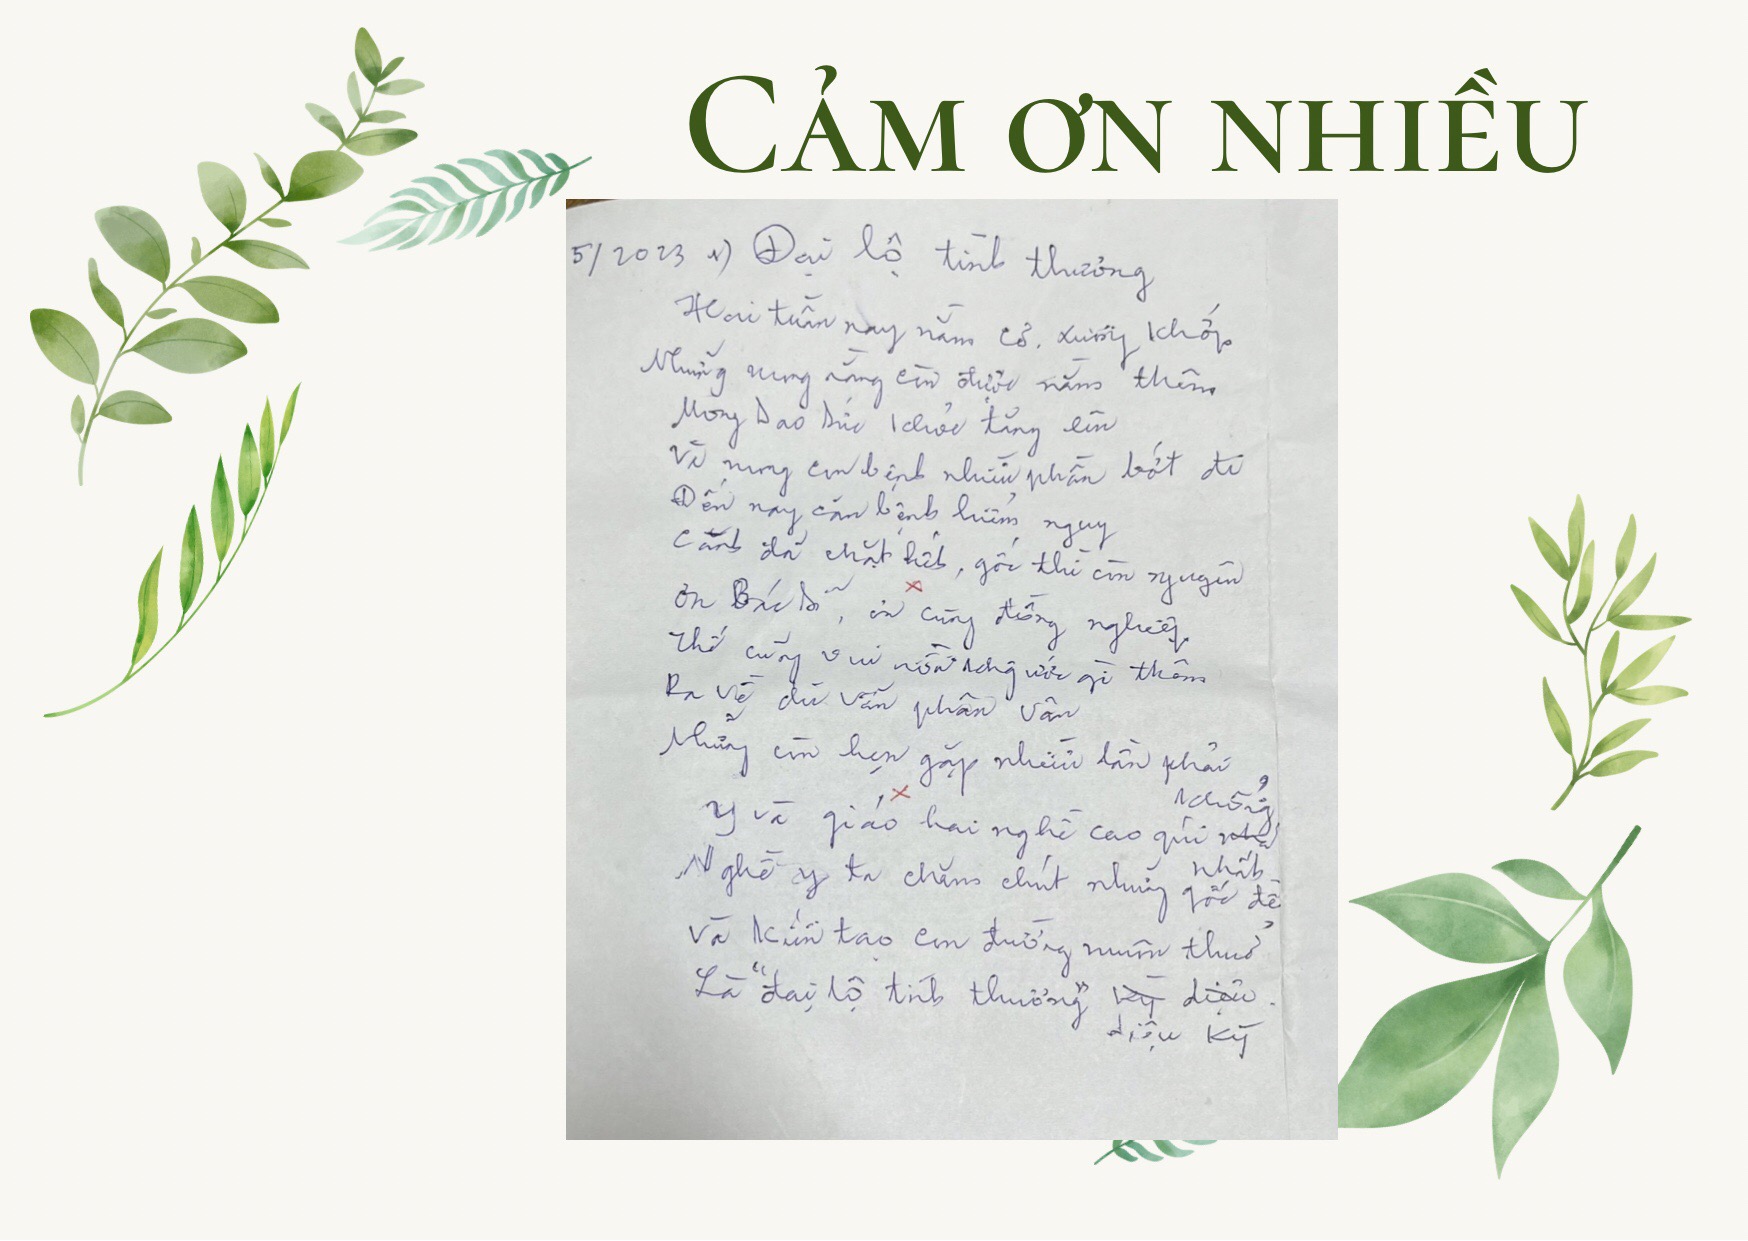 CẢM ƠN NHIỀU
5/2023 1) Đại lộ tình thương
Hai tuần nay nằm cơ, xương khớp
Nhưng mong rằng còn được nằm thêm
Mong sao sức khỏe tăng lên
Và mong cơn bệnh nhiều phần bớt đi
Đến nay căn bệnh hiểm nguy
Cành đã chặt hết, gốc thì còn nguyên
ơn Bác Sĩ, ơn cùng đồng nghiệp
Thế cũng vui rồi ước gì thêm
Ra về dù vẫn phân vân
Nhưng còn hẹn gặp nhiều lần phải
không
Y và giáo hai nghề cao quí
nhất
Nghề y ta chăm chút những gốc đề
Và kiến tạo con đường muôn thuở
Là "đại lộ tình thương" kỳ diệu.
diệu kỳ